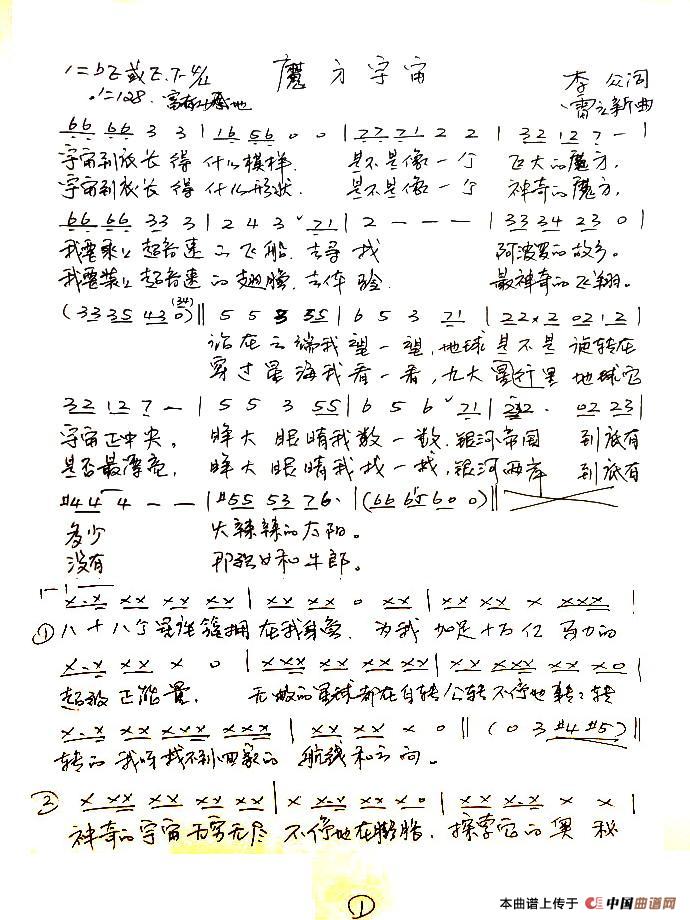 魔方宇宙
1=bE或E.F 4/4
李众词
♩=128.
雷立新曲
66 66 3 3 | 16 56 0 0 | 77 71 2 2 | 32 12 7 - |
宇宙到底长得 什么模样. 是不是像一个 飞大的魔方.
宇宙到底长得 什么形状. 是不是像一个 神奇的魔方.
66 66 33 3 | 2 4 3 ˅ 71 | 2 - - - | 33 34 23 0 |
我要乘上超音速的飞船, 去寻找 阿波罗的故乡。
我要装上超音速的翅膀, 去体验 最神奇的飞翔。
(33 35 43 0) (34) || 5 5 3 55 | 6 5 3 71 | 22·2 02 12 |
站在云端我望一望, 地球是不是 旋转在
穿过星海我看一看, 九大行星里 地球它
32 12 7 - | 5 5 3 55 | 6 5 6 ˅ 71 | 22· 02 23 |
宇宙正中央。 睁大眼睛我数一数, 银河帝国 到底有
是否最漂亮, 睁大眼睛我找一找, 银河两岸 到底有
#44 4 - - | #55 53 76· | (66 65 60 0) ||
多少 火辣辣的太阳。
没有 那织女和牛郎。
x·x xx xx xx | xx xx 0 xx | xx xx x xxx |
① 八十八个星座簇拥在我身旁, 为我加足十万亿马力的
x·x xx x 0 | xxx xxx xx xx | xx xxx xx x0 |
超级正能量. 无数的星球都在自转公转不停地转转转
x·x xx xxx xxx | xx xx x 0 || (0 3 #4 #5) ||
转的我呀找不到回家的 航线和方向。
② x xx xx xx xx | x xx xx x0 | xx xx x x |
神奇的宇宙无穷无尽 不停地在膨胀. 探索它的奥秘
①
本曲谱上传于 中国曲谱网